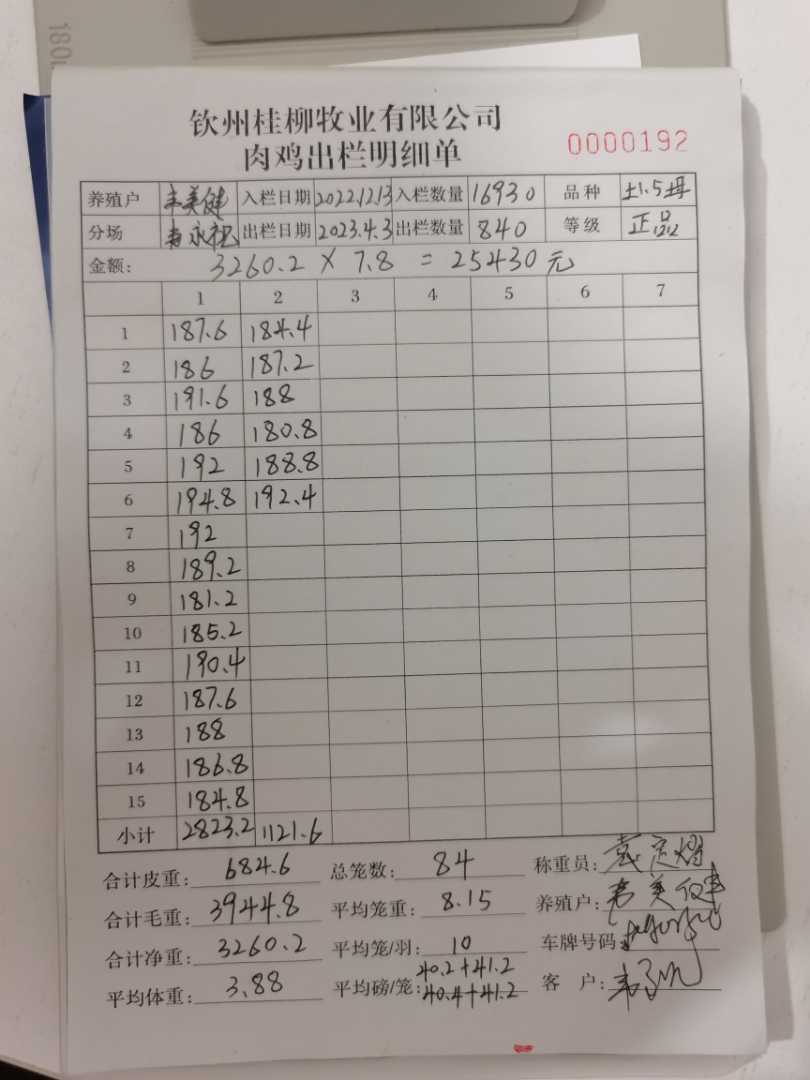 180
钦州桂柳牧业有限公司
肉鸡出栏明细单
0000192
养殖户 韦美健 入栏日期 2022.12.13 入栏数量 16930 品种 土1.5母
分场 韦永祝 出栏日期 2023.4.3 出栏数量 840 等级 正品
金额: 3260.2 × 7.8 = 25430元
1 2 3 4 5 6 7
1 187.6 184.4
2 186 187.2
3 191.6 188
4 186 180.8
5 192 188.8
6 194.8 192.4
7 192
8 189.2
9 181.2
10 185.2
11 190.4
12 187.6
13 188
14 186.8
15 184.8
小计 2823.2 1121.6
合计皮重: 684.6 总笼数: 84 称重员:
合计毛重: 3944.8 平均笼重: 8.15 养殖户: 韦美健
合计净重: 3260.2 平均笼/羽: 10 车牌号码:
平均体重: 3.88 平均磅/笼: 40.2+41.2 客 户:
40.4+41.2